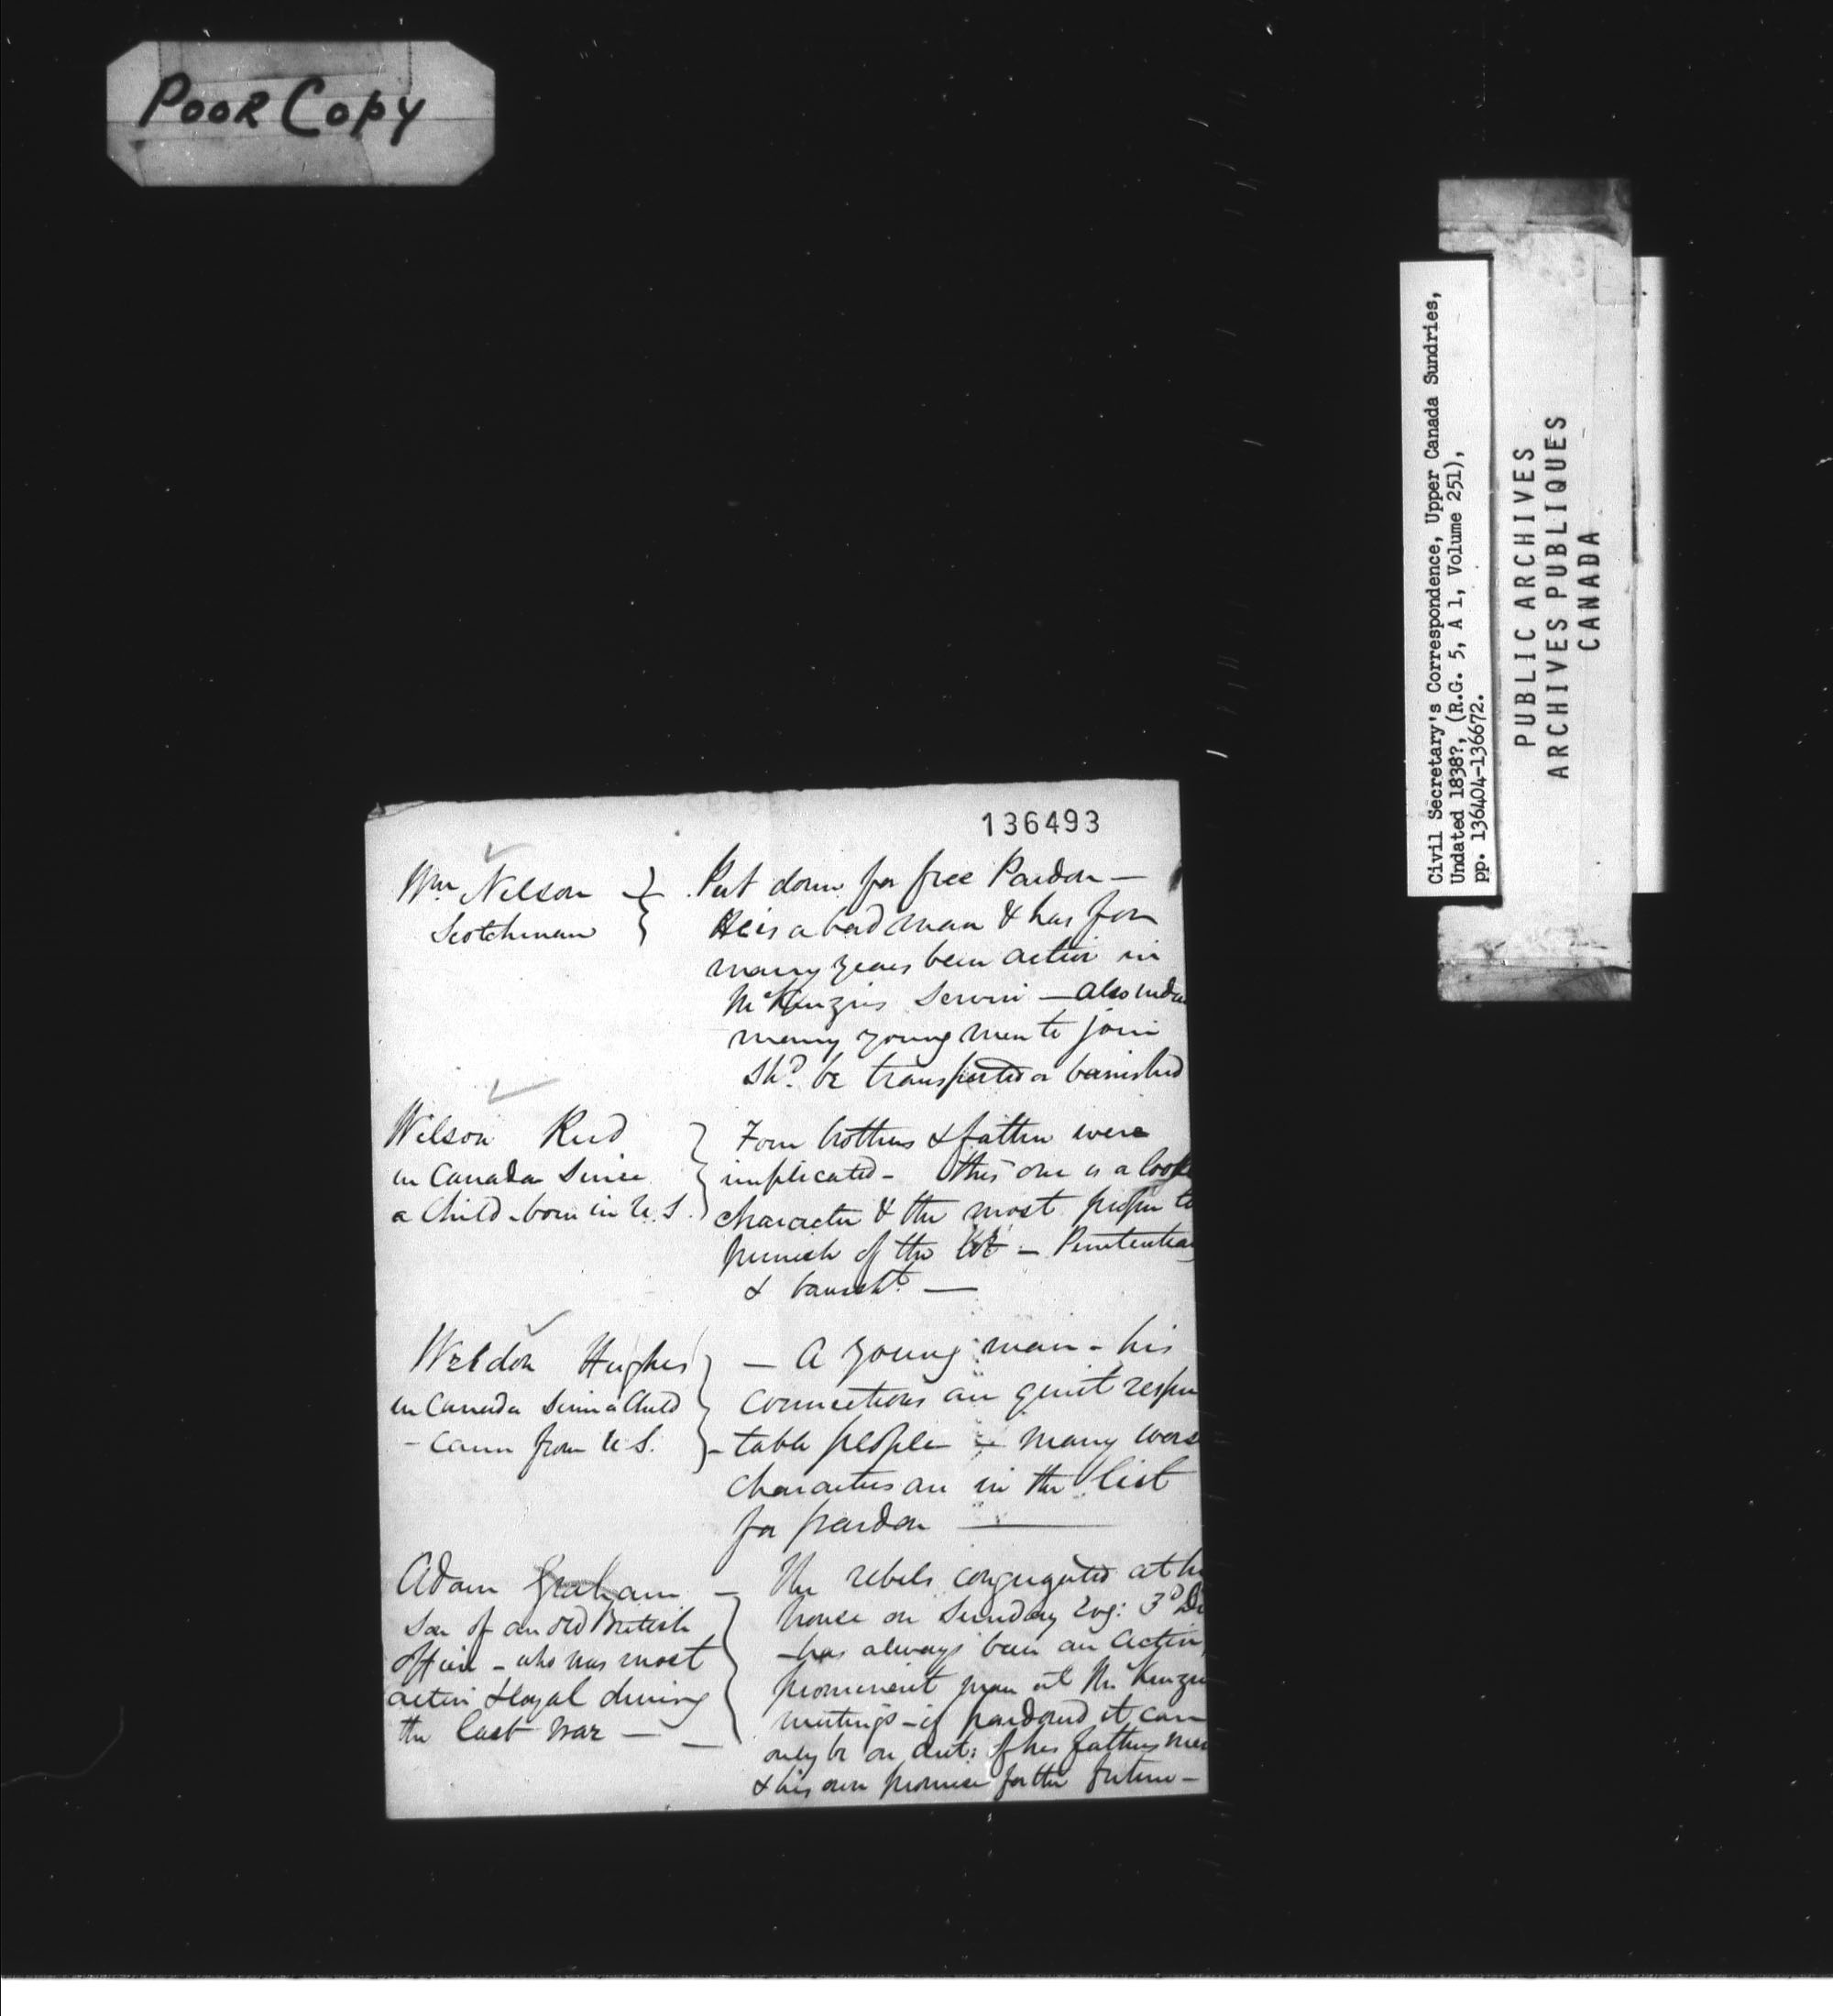 POOR COPY
136493
Wm Nelson } Put down for free Pardon —
Scotchman } He is a bad man & has for
many years been active in
McKenzies Service — also indu
many young men to join
Shd. be transported or banished
Wilson Reid } Four brothers & father were
in Canada Since } implicated - this one is a loose
a Child - born in U.S. } character & the most proper to
punish of the — Penitentiary
& banisht. —
Weldon Hughes } — A young man - his
in Canada Since a Child } connections are quiet respec
- came from U S. } - table people — many worse
characters are in the list
for pardon —
Adam Graham — The rebels congregated at h
Son of an old British } house on Sunday Evg: 3d De
Officer - who was most } - has always been an active,
active & loyal during } prominent man at McKenzie
the last war — — } meetings - if pardoned it can
only be on acct: of his fathers mer
& his own promise for the future -
Civil Secretary's Correspondence, Upper Canada Sundries,
Undated 1838?, (R.G. 5, A 1, Volume 251),
pp. 136404-136672.
PUBLIC ARCHIVES
ARCHIVES PUBLIQUES
CANADA